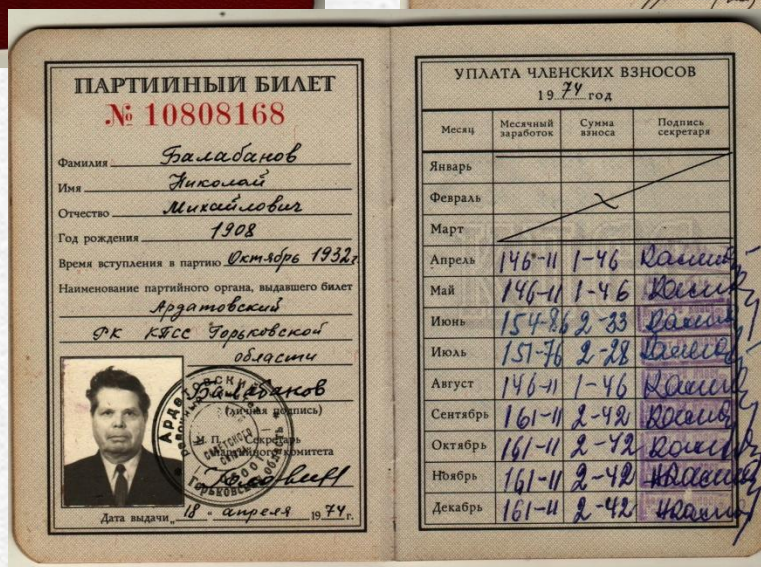 ПАРТИЙНЫЙ БИЛЕТ
№ 10808168
Фамилия Балабанов
Имя Николай
Отчество Михайлович
Год рождения 1908
Время вступления в партию Октябрь 1932г
Наименование партийного органа, выдавшего билет
Ардатовский
РК КПСС Горьковской
области
Балабанов
(личная подпись)
М. П. Секретарь
партийного комитета
Дата выдачи „18" апреля 1974 г.
УПЛАТА ЧЛЕНСКИХ ВЗНОСОВ
1974 год
Месяц Месячный заработок Сумма взноса Подпись секретаря
Январь
Февраль
Март
Апрель 146-11 1-46
Май 146-11 1-46
Июнь 154-86 2-33
Июль 151-76 2-28
Август 146-11 1-46
Сентябрь 161-11 2-42
Октябрь 161-11 2-42
Ноябрь 161-11 2-42
Декабрь 161-11 2-42